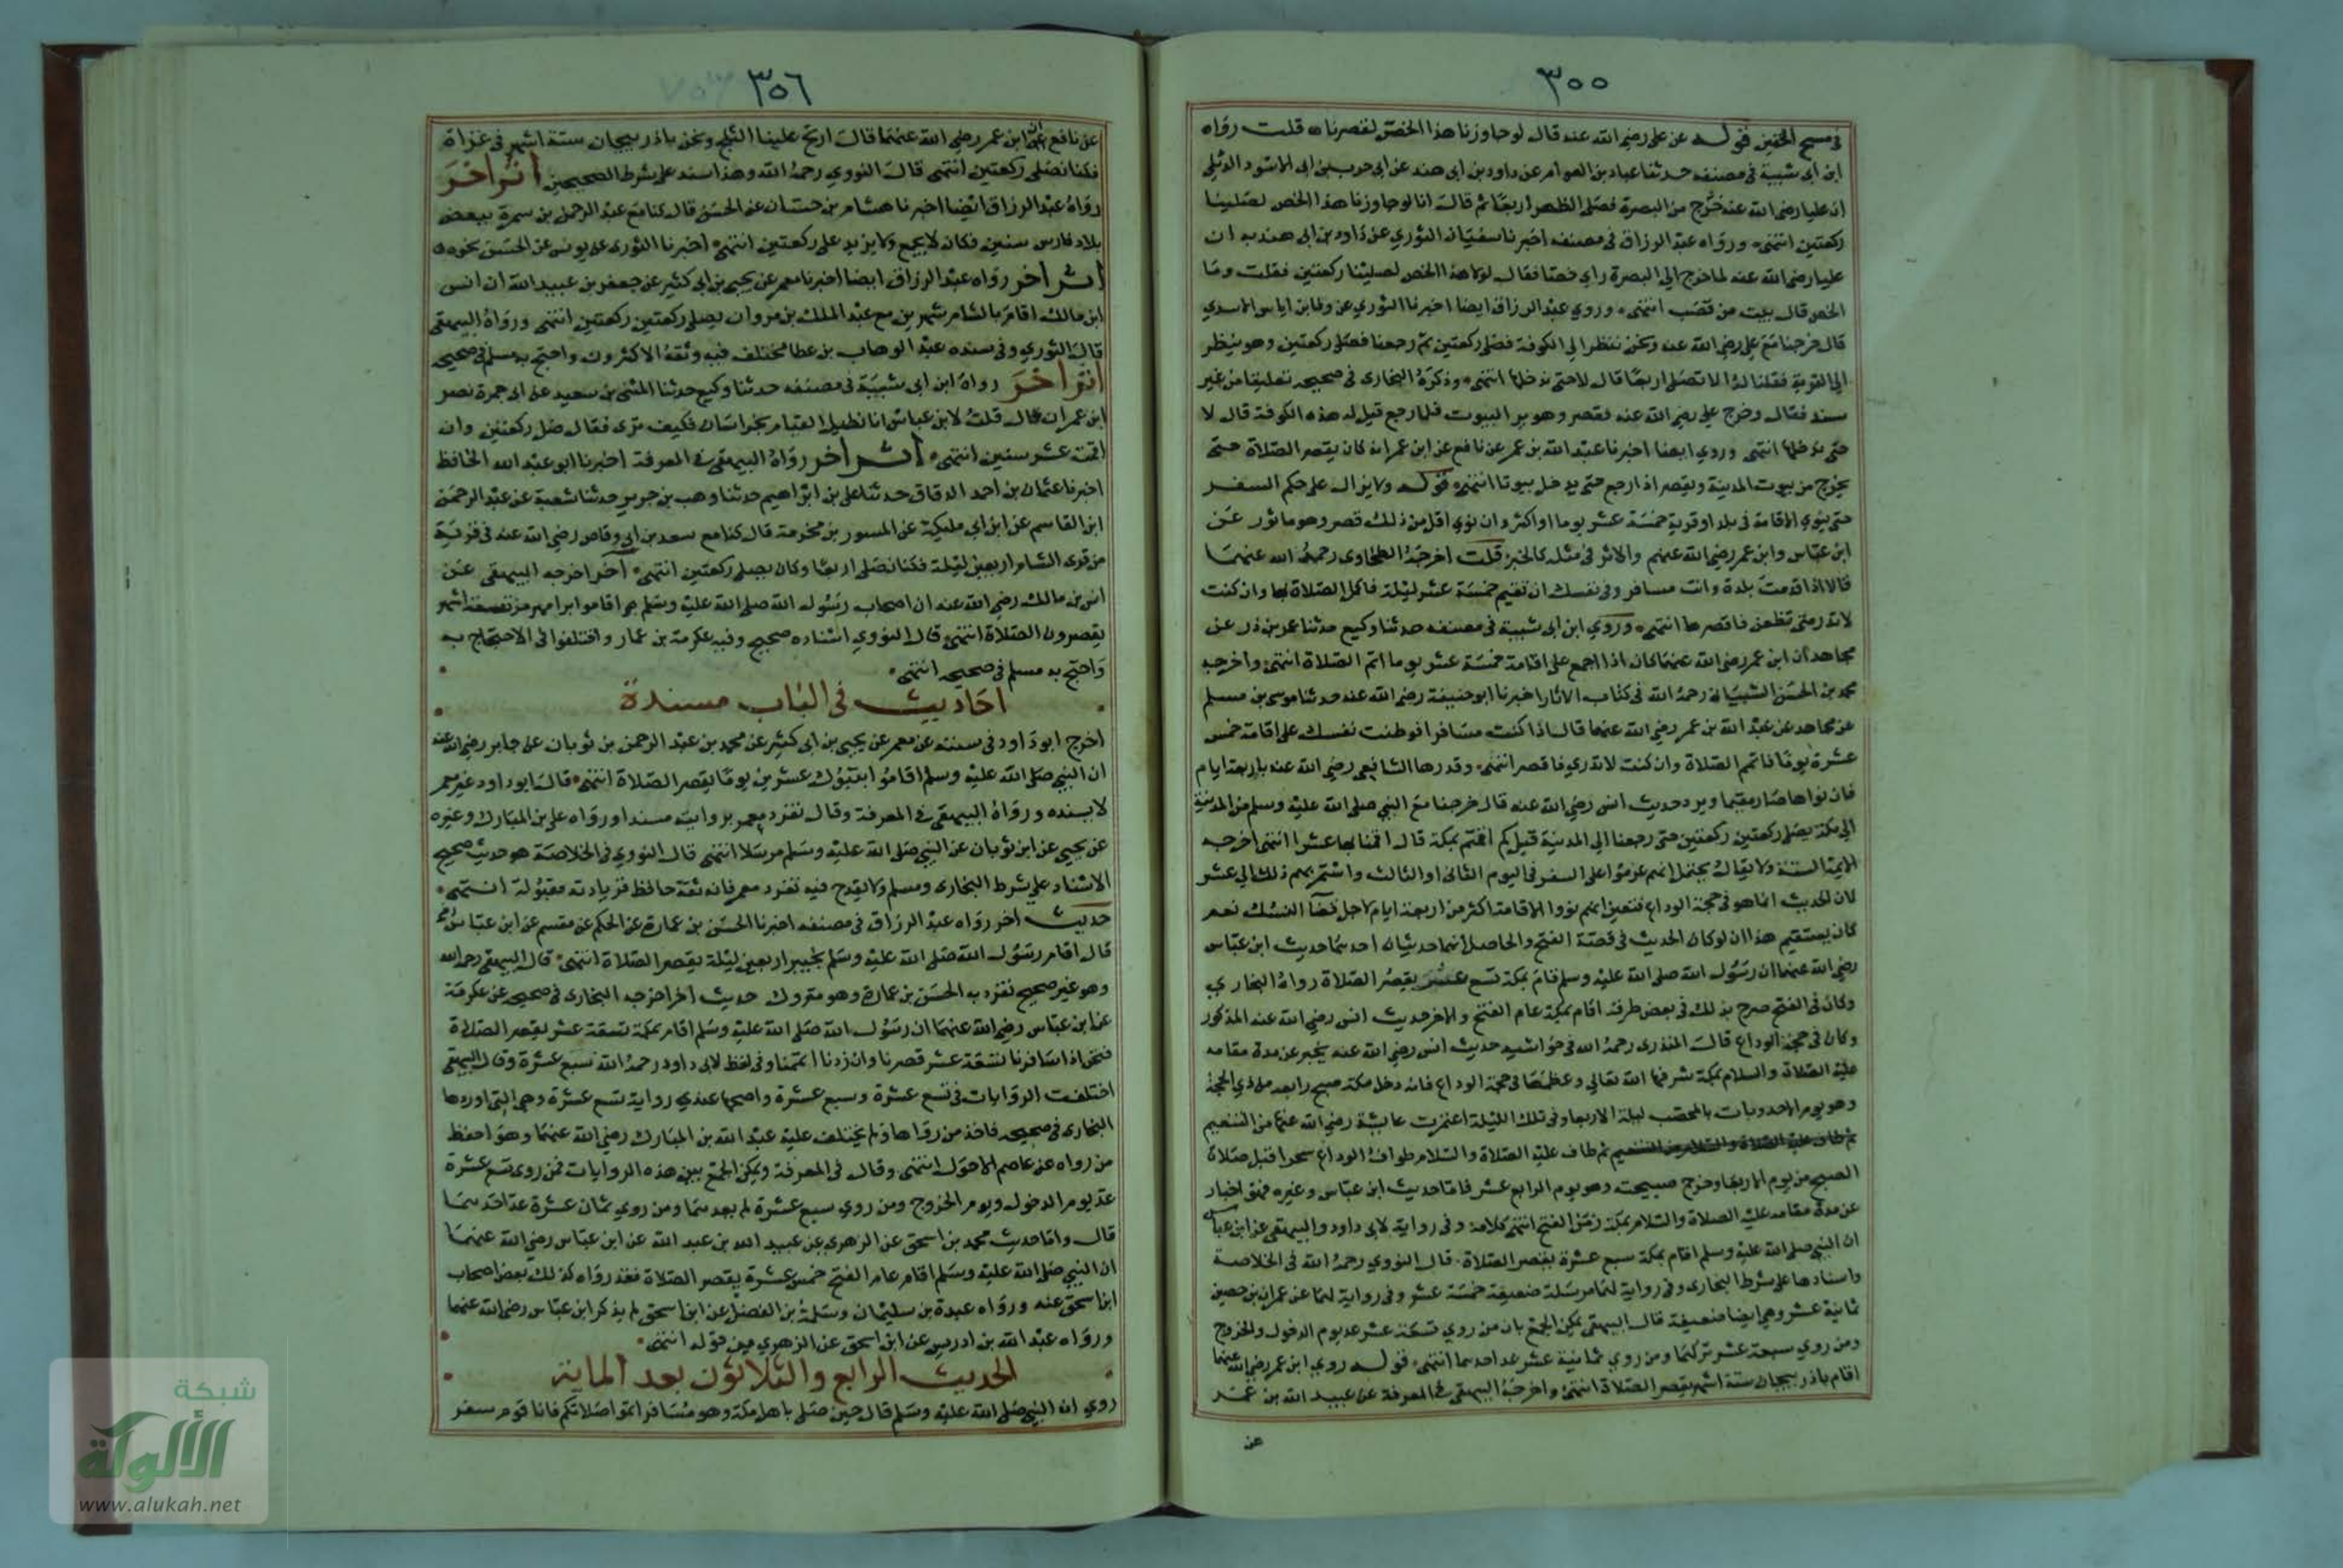 ٣٥٥
في مسح الخفين قوله عن علي رضي الله عنه قال لو جاوزنا هذا الخص لقصرنا قلت رواه
ابن أبي شيبة في مصنفه حدثنا عباد بن العوام عن داود بن ابي هند عن ابي حرب بن ابي الاسود الدئلي
ان عليا رضي الله عنه خرج من البصرة فصلى الظهر اربعا ثم قال انا لو جاوزنا هذا الخص لصلينا
ركعتين انتهى ورواه عبد الرزاق في مصنفه اخبرنا سفيان الثوري عن داود بن ابي هند به ان
عليا رضي الله عنه لما خرج الي البصرة راي خصا فقال لولا هذا الخص لصلينا ركعتين فقلت وما
الخص قال بيت من قصب انتهى وروي عبد الرزاق ايضا اخبرنا الثوري عن وقا بن اياس الاسدي
قال خرجنا مع علي رضي الله عنه ونحن ننظر الي الكوفة فصلى ركعتين ثم رجعنا فصلى ركعتين وهو ينظر
الي القرية فقلنا له الا تصلي اربعا قال لا حتى ندخلها انتهى وذكره البخاري في صحيحه تعليقا من غير
سند فقال وخرج علي رضي الله عنه فقصر وهو يري البيوت فلما رجع قيل له هذه الكوفة قال لا
حتى ندخلها انتهى وروي ايضا اخبرنا عبد الله بن عمر عن نافع عن ابن عمر انه كان يقصر الصلاة حتى
يخرج من بيوت المدينة ويقصر اذا رجع حتى يدخل بيوتها انتهى قوله ولا يزال على حكم السفر
حتى ينوي الاقامة في بلد او قرية خمسة عشر يوما او اكثر وان نوي اقل من ذلك قصر وهو ماثور عن
ابن عباس وابن عمر رضي الله عنهم والاثر في مثله كالخبر قلت اخرجه الطحاوي رحمه الله عنهما
قالا اذا قدمت بلدة وانت مسافر وفي نفسك ان تقيم خمسة عشر ليلة فاكمل الصلاة بها وان كنت
لا تدري متى تظعن فاقصرها انتهى وروي ابن ابي شيبة في مصنفه حدثنا وكيع حدثنا عمر بن ذر عن
مجاهد ان ابن عمر رضي الله عنهما كان اذا اجمع على اقامة خمسة عشر يوما اتم الصلاة انتهى واخرجه
محمد بن الحسن الشيباني رحمه الله في كتاب الاثار اخبرنا ابو حنيفة رضي الله عنه حدثنا موسى بن مسلم
عن مجاهد عن عبد الله بن عمر رضي الله عنهما قال اذا كنت مسافرا فوطنت نفسك على اقامة خمس
عشرة يوما فاتمم الصلاة وان كنت لا تدري فاقصر انتهى وقدرها الشافعي رضي الله عنه باربعة ايام
فان نواها صار مقيما ويرده حديث انس رضي الله عنه قال خرجنا مع النبي صلى الله عليه وسلم من المدينة
الي مكة يصلي ركعتين ركعتين حتى رجعنا الي المدينة قيل كم اقمتم بمكة قال اقمنا بها عشرا انتهى اخرجه
الايمة الستة ولا يقال يحتمل انهم عزموا على السفر في اليوم الثاني او الثالث واستمر بهم ذلك الي عشر
لان الحديث انما هو في حجة الوداع فتعين انهم نووا الاقامة اكثر من اربعة ايام لاجل قضا النسك نعم
كان يستقيم هذا ان لو كان الحديث في قصة الفتح والحاصل انهما حديثان احدهما حديث ابن عباس
رضي الله عنهما ان رسول الله صلى الله عليه وسلم قام بمكة تسع عشر يقصر الصلاة رواه البخاري
وكان في الفتح صرح بذلك في بعض طرقه اقام بمكة عام الفتح والاخر حديث انس رضي الله عنه المذكور
وكان في حجة الوداع قال المنذري رحمه الله في حواشيه حديث انس رضي الله عنه يخبر عن مدة مقامه
عليه الصلاة والسلام بمكة شرفها الله تعالي وعظمها في حجة الوداع فانه دخل مكة صبح رابعه من ذي الحجة
وهو يوم الاحد وبات بالمحصب ليلة الاربعا وفي تلك الليلة اعتمرت عايشة رضي الله عنها من التنعيم
ثم طاف عليه الصلاة والسلام طواف الوداع سحرا قبل صلاة
الصبح من يوم الاربعا وخرج صبيحته وهو يوم الرابع عشر فاما حديث ابن عباس وغيره فهو اخبار
عن مدة مقامه عليه الصلاة والسلام بمكة زمن الفتح انتهى كلامه وفي رواية لابي داود والبيهقي عن ابن عباس
ان النبي صلى الله عليه وسلم اقام بمكة سبع عشرة يقصر الصلاة قال النووي رحمه الله في الخلاصة
واسنادها على شرط البخاري وفي رواية لهما مرسلة ضعيفة خمسة عشر وفي رواية لهما عن عمران بن حصين
ثمانية عشر وهي ايضا ضعيفة قال البيهقي يمكن الجمع بان من روي تسعة عشر عد يوم الدخول والخروج
ومن روي سبعة عشر تركهما ومن روي ثمانية عشر عد احدهما انتهى قوله روي ابن عمر رضي الله عنهما
اقام باذربيجان ستة اشهر يقصر الصلاة انتهى واخرجه البيهقي في المعرفة عن عبيد الله بن عمر
عن
٣٥٦
عن نافع ان ابن عمر رضي الله عنهما قال ارتج علينا الثلج ونحن باذربيجان ستة اشهر في غزاة
فكنا نصلي ركعتين انتهى قال النووي رحمه الله وهذا سند على شرط الصحيحين اثر اخر
رواه عبد الرزاق ايضا اخبرنا هشام بن حسان عن الحسن قال كنا مع عبد الرحمن بن سمرة ببعض
بلاد فارس سنين فكان لا يجمع ولا يزيد على ركعتين انتهى اخبرنا الثوري عن يونس عن الحسن نحوه
اثر اخر رواه عبد الرزاق ايضا اخبرنا معمر عن يحيى بن ابي كثير عن جعفر بن عبيد الله ان انس
ابن مالك اقام بالشام شهرين مع عبد الملك بن مروان يصلي ركعتين ركعتين انتهى ورواه البيهقي
قال النووي وفي سنده عبد الوهاب بن عطا مختلف فيه وثقه الاكثرون واحتج به مسلم في صحيحه
اثر اخر رواه ابن ابي شيبة في مصنفه حدثنا وكيع حدثنا المثنى بن سعيد عن ابي جمرة نصر
ابن عمران قال قلت لابن عباس انا نطيل القيام بخراسان فكيف ترى فقال صل ركعتين وان
اقمت عشر سنين انتهى اثر اخر رواه البيهقي في المعرفة اخبرنا ابو عبد الله الحافظ
اخبرنا عثمان بن احمد الدقاق حدثنا علي بن ابراهيم حدثنا وهب بن جرير حدثنا شعبة عن عبد الرحمن
ابن القاسم عن ابن ابي مليكة عن المسور بن مخرمة قال كنا مع سعد بن ابي وقاص رضي الله عنه في قرية
من قرى الشام اربعين ليلة فكنا نصلي اربعا وكان يصلي ركعتين انتهى آخر اخرجه البيهقي عن
انس بن مالك رضي الله عنه ان اصحاب رسول الله صلى الله عليه وسلم اقاموا برامهرمز تسعة اشهر
يقصرون الصلاة انتهى قال النووي اسناده صحيح وفيه عكرمة بن عمار واختلفوا في الاحتجاج به
واحتج به مسلم في صحيحه انتهى
احاديث في الباب مسندة
اخرج ابو داود في سننه عن معمر عن يحيى بن ابي كثير عن محمد بن عبد الرحمن بن ثوبان عن جابر رضي الله عنه
ان النبي صلى الله عليه وسلم اقاموا بتبوك عشرين يوما يقصر الصلاة انتهى قال ابو داود غير معمر
لا يسنده ورواه البيهقي في المعرفة وقال تفرد معمر بروايته مسندا ورواه علي بن المبارك وغيره
عن يحيى عن ابن ثوبان عن النبي صلى الله عليه وسلم مرسلا انتهى قال النووي في الخلاصة هو حديث صحيح
الاسناد على شرط البخاري ومسلم ولا يقدح فيه تفرد معمر فانه ثقة حافظ فزيادته مقبولة انتهى
حديث اخر رواه عبد الرزاق في مصنفه اخبرنا الحسن بن عمارة عن الحكم عن مقسم عن ابن عباس
قال اقام رسول الله صلى الله عليه وسلم بخيبر اربعين ليلة يقصر الصلاة انتهى قال البيهقي رحمه الله
وهو غير صحيح تفرد به الحسن بن عمارة وهو متروك حديث اخر اخرجه البخاري في صحيحه عن عكرمة
عن ابن عباس رضي الله عنهما ان رسول الله صلى الله عليه وسلم اقام بمكة تسعة عشر يقصر الصلاة
فنحن اذا سافرنا تسعة عشر قصرنا وان زدنا اتممنا وفي لفظ لابي داود رحمه الله سبع عشرة وقال البيهقي
اختلفت الروايات في تسع عشرة وسبع عشرة واصحها عندي رواية تسع عشرة وهي التي اوردها
البخاري في صحيحه فاخذ من رواها ولم يختلف عليه عبد الله بن المبارك رضي الله عنهما وهو احفظ
من رواه عن عاصم الاحول انتهى وقال في المعرفة ويمكن الجمع بين هذه الروايات فمن روي تسع عشرة
عد يوم الدخول ويوم الخروج ومن روي سبع عشرة لم يعدهما ومن روي ثمان عشرة عد احدهما
قال واما حديث محمد بن اسحق عن الزهري عن عبيد الله بن عبد الله عن ابن عباس رضي الله عنهما
ان النبي صلى الله عليه وسلم اقام عام الفتح خمس عشرة يقصر الصلاة فقد رواه كذلك بعض اصحاب
ابن اسحق عنه ورواه عبدة بن سليمان وسلمة بن الفضل عن ابن اسحق لم يذكر ابن عباس رضي الله عنهما
ورواه عبد الله بن ادريس عن ابن اسحق عن الزهري من قوله انتهى
الحديث الرابع والثلاثون بعد الماية
روي ان النبي صلى الله عليه وسلم قال حين صلى باهل مكة وهو مسافر اتموا صلاتكم فانا قوم سفر
شبكة
الألوكة
www.alukah.net